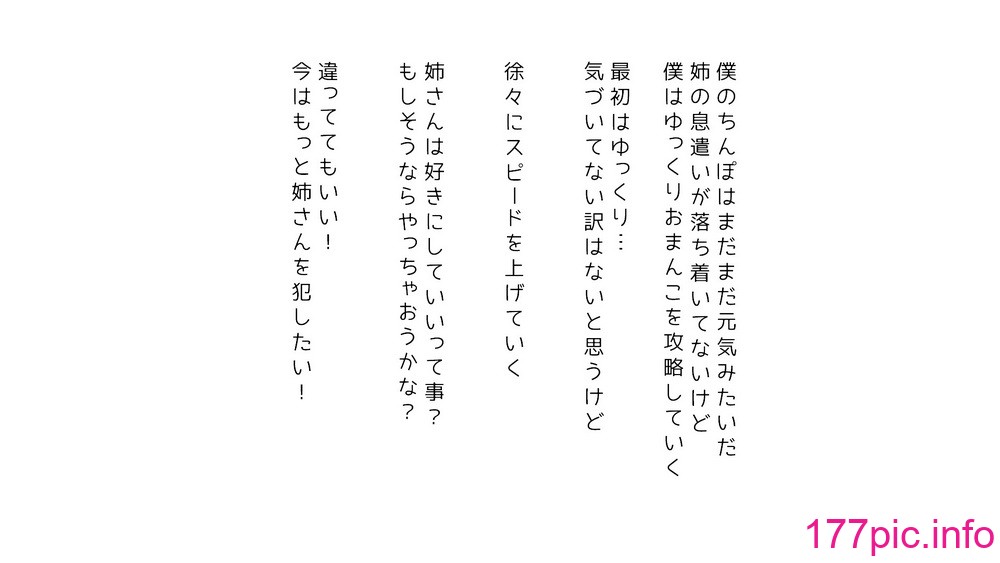 僕のちんぽはまだまだ元気みたいだ
姉の息遣いが落ち着いてないけど
僕はゆっくりおまんこを攻略していく
最初はゆっくり…
気づいてない訳はないと思うけど
徐々にスピードを上げていく
姉さんは好きにしていいって事？
もしそうならやっちゃおうかな？
違っててもいい！
今はもっと姉さんを犯したい！
177pic.info